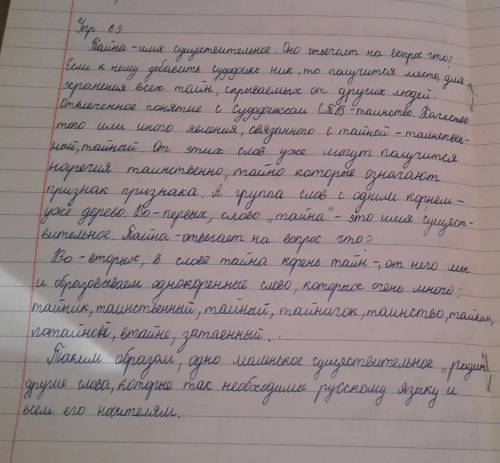 Упр 63.
Тайна - имя существительное. Оно отвечает на вопрос что?
Если к нему добавить суффикс ник, то получится место, для
хранения всех тайн, скрываемых от других людей.
Отвлеченное понятие с суффиксом СТВ - таинство. Качество
того или иного явления, связанного с тайной - таинствен-
ный, тайный. От этих слов уже могут получится
наречия таинственно, тайно которые означают
признак признака. А группа слов с одним корнем -
уже дерево. Во-первых, слово "тайна" - это имя сущест-
вительное. Тайна - отвечает на вопрос что?
Во-вторых, в слове тайна корень тайн-, от него мы
и образовываем однокоренные слова, которых очень много:
тайник, таинственный, тайный, тайничок, таинство, тайком,
потайный, втайне, затаенный.
Таким образом, одно маленькое существительное "родит"
другие слова, которые так необходимы русскому языку и
всем его носителям.